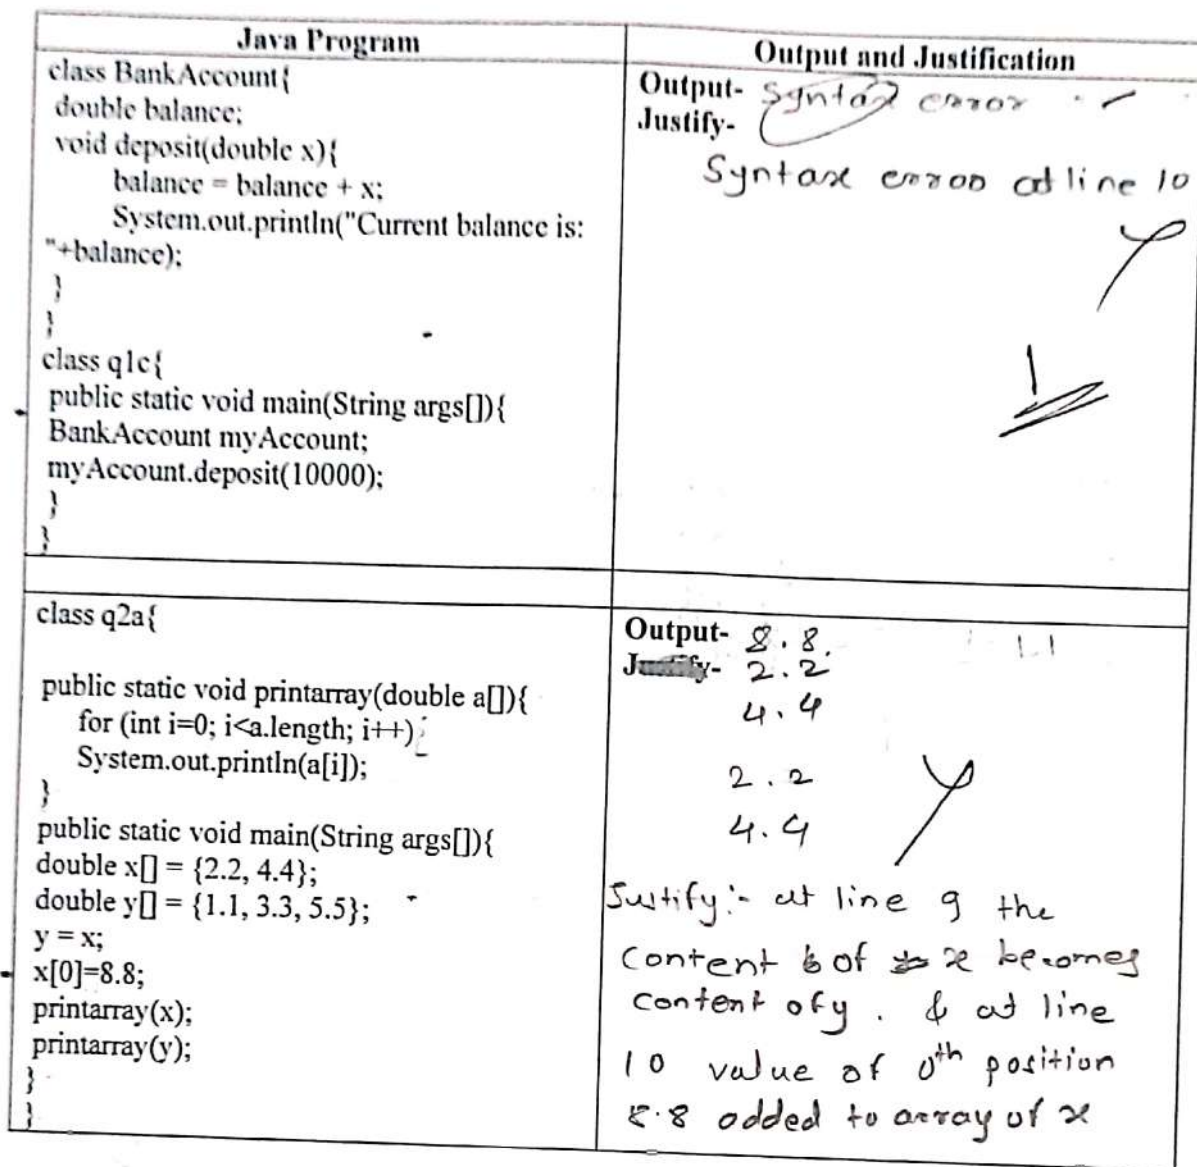 Java Program
class BankAccount{
double balance;
void deposit(double x){
balance = balance + x;
System.out.println("Current balance is:
"+balance);
}
}
class q1c{
public static void main(String args[]){
BankAccount myAccount;
myAccount.deposit(10000);
}
}
Output and Justification
Output- Syntax error
Justify-
Syntax error at line 10
1
class q2a{
public static void printarray(double a[]){
for (int i=0; i<a.length; i++)
System.out.println(a[i]);
}
public static void main(String args[]){
double x[] = {2.2, 4.4};
double y[] = {1.1, 3.3, 5.5};
y = x;
x[0]=8.8;
printarray(x);
printarray(y);
}
}
Output- 8.8.
Justify- 2.2
4.4
2.2
4.4
Justify:- at line 9 the
content of x becomes
content of y. & at line
10 value of 0th position
8.8 added to array of x